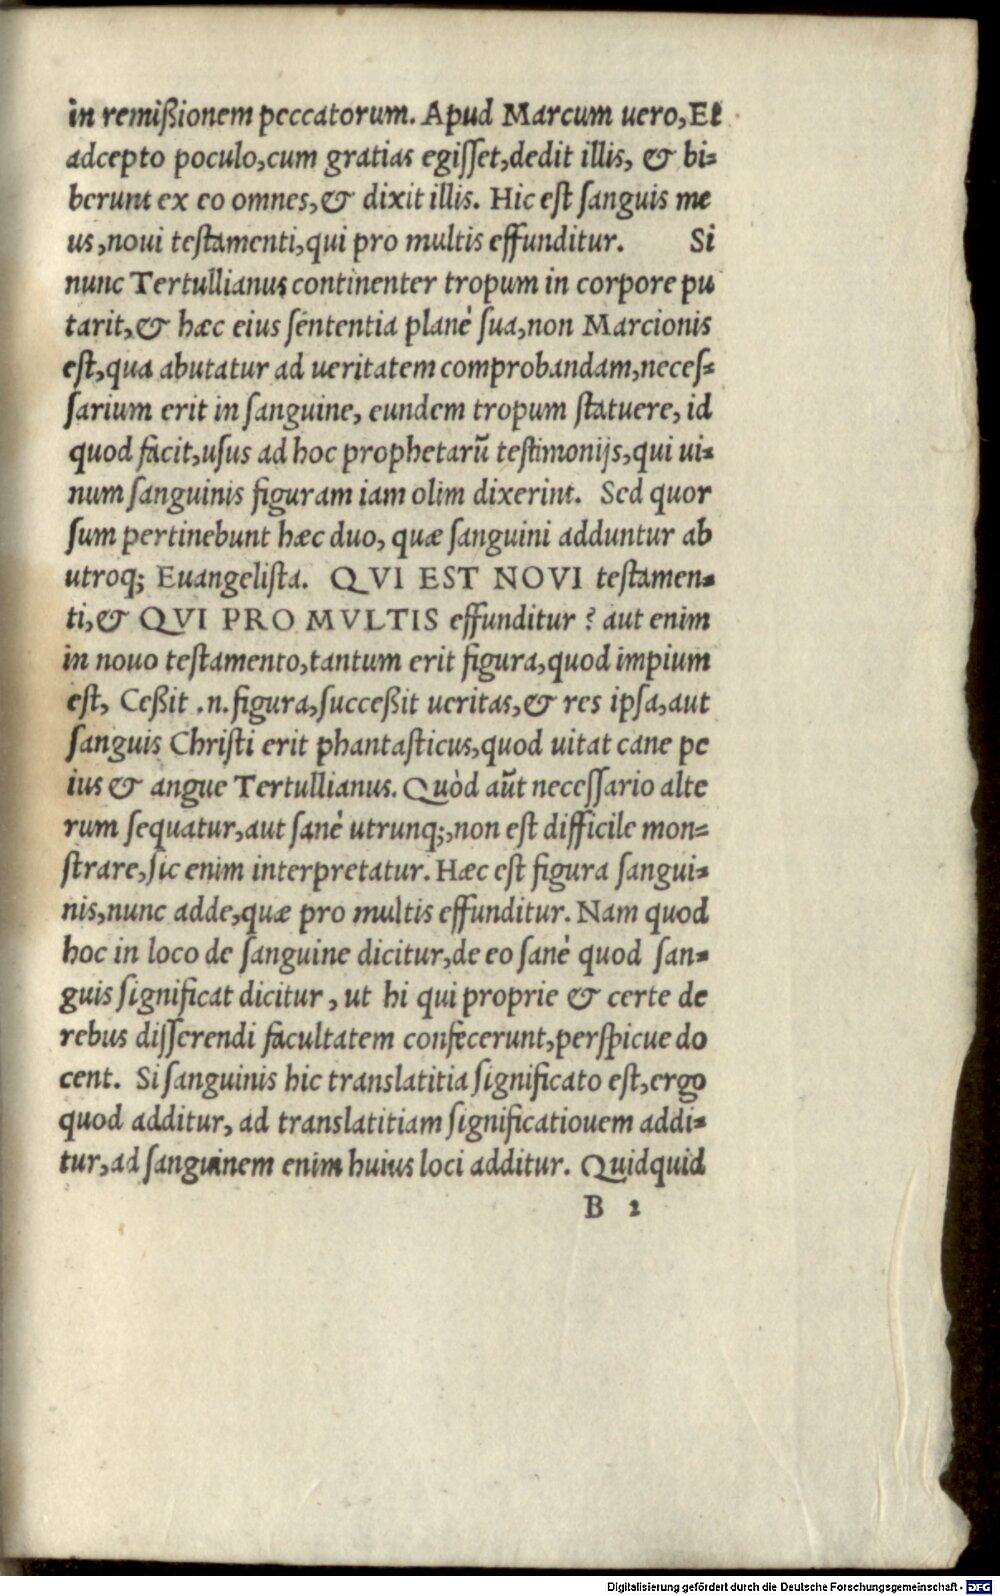 in remißionem peccatorum. Apud Marcum uero, Et
adcepto poculo, cum gratias egiſſet, dedit illis, & bi-
berunt ex eo omnes, & dixit illis. Hic eſt ſanguis me
us, noui teſtamenti, qui pro multis effunditur. Si
nunc Tertullianus continenter tropum in corpore pu
tarit, & hæc eius ſententia planè ſua, non Marcionis
eſt, qua abutatur ad ueritatem comprobandam, neceſ-
ſarium erit in ſanguine, eundem tropum ſtatuere, id
quod facit, uſus ad hoc prophetarũ teſtimonijs, qui ui-
num ſanguinis figuram iam olim dixerint. Sed quor
ſum pertinebunt hæc duo, quæ ſanguini adduntur ab
utroq; Euangeliſta. QVI EST NOVI teſtamen-
ti, & QVI PRO MVLTIS effunditur? aut enim
in nouo teſtamento, tantum erit figura, quod impium
eſt, Ceßit .n. figura, ſucceßit ueritas, & res ipſa, aut
ſanguis Chriſti erit phantaſticus, quod uitat cane pe
ius & angue Tertullianus. Quòd aũt neceſſario alte
rum ſequatur, aut ſanè utrunq;, non eſt difficile mon-
ſtrare, ſic enim interpretatur. Hæc eſt figura ſangui-
nis, nunc adde, quæ pro multis effunditur. Nam quod
hoc in loco de ſanguine dicitur, de eo ſanè quod ſan-
guis ſignificat dicitur, ut hi qui proprie & certe de
rebus diſſerendi facultatem confecerunt, perſpicue do
cent. Si ſanguinis hic translatitia ſignificatio eſt, ergo
quod additur, ad translatitiam ſignificatiouem addi-
tur, ad ſanguinem enim huius loci additur. Quidquid
B 2
Digitalisierung gefördert durch die Deutsche Forschungsgemeinschaft - DFG